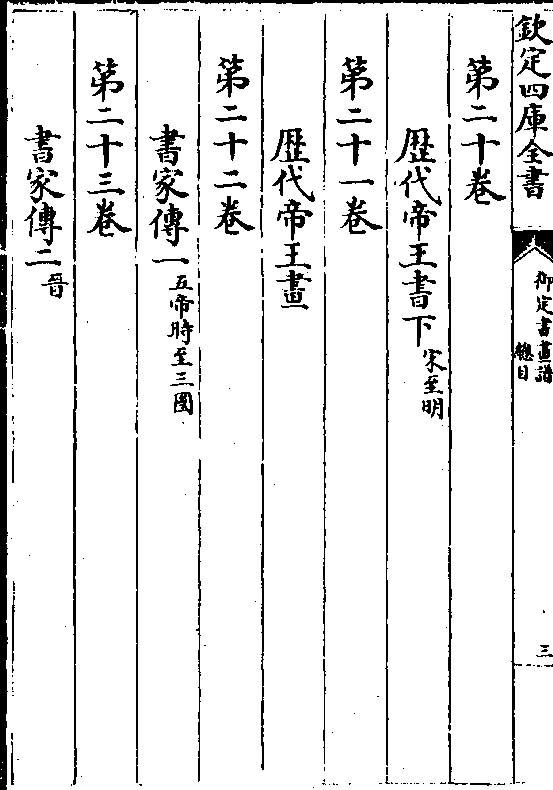 欽定四庫全書
御定書畫譜
總目
三
第二十卷
歴代帝王書下宋至明
第二十一卷
歴代帝王畫
第二十二卷
書家傳一五帝時至三國
第二十三卷
書家傳二晉